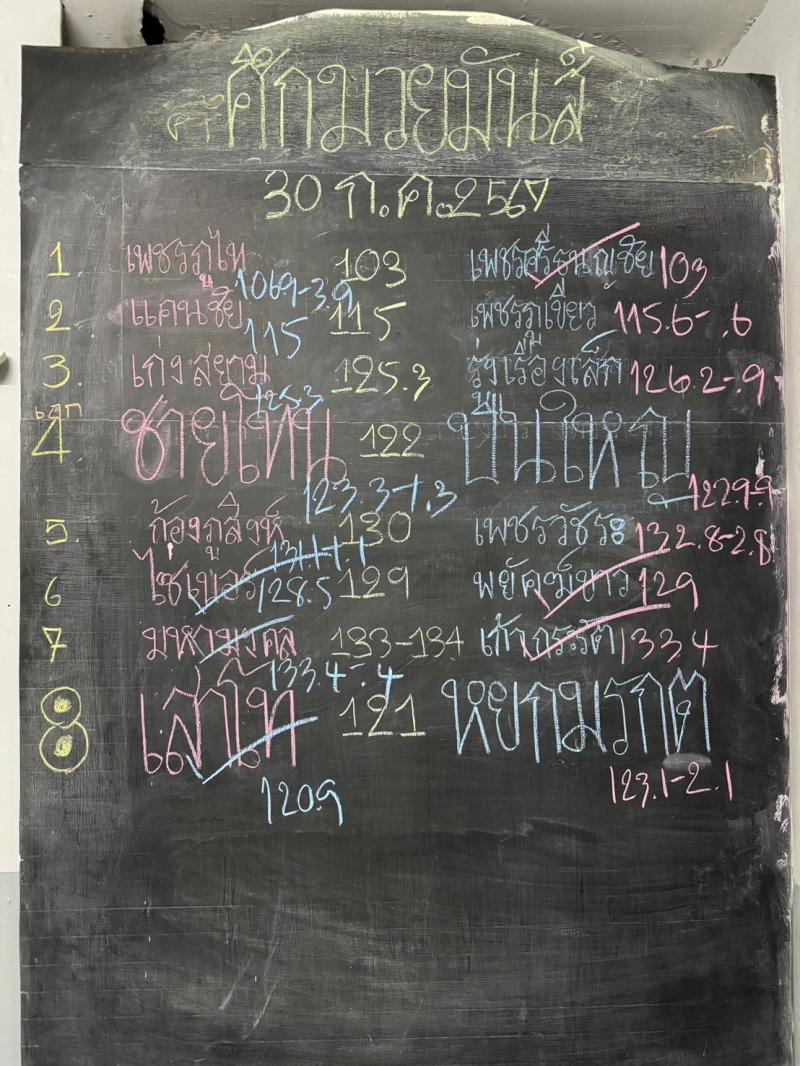 ศึกมวยมันส์
30 ก.ค. 2567
1. เพชรภูไท 103 เพชรศรีธนญชัย 103
1069-3.9
2 แคนชัย 115 เพชรภูเขียว 115.6-.6
115
3. เก่งสยาม 125.3 รุ่งเรืองเล็ก 126.2-.9
125.3
4. ชายโทน 122 ปืนใหญ่
123.3-1.3 122.9-.9
5. ก้องภูสิงห์ 130 เพชรวัชระ 132.8-2.8
131.1-1.1
6 ไซเบอร์ 128.5 129 พยัคฆ์ขาว 129
7 มหามงคล 133-134 เก้า 133.4
133.4-.4
8 เสาโท 121 หยกมรกต
120.9 123.1-2.1